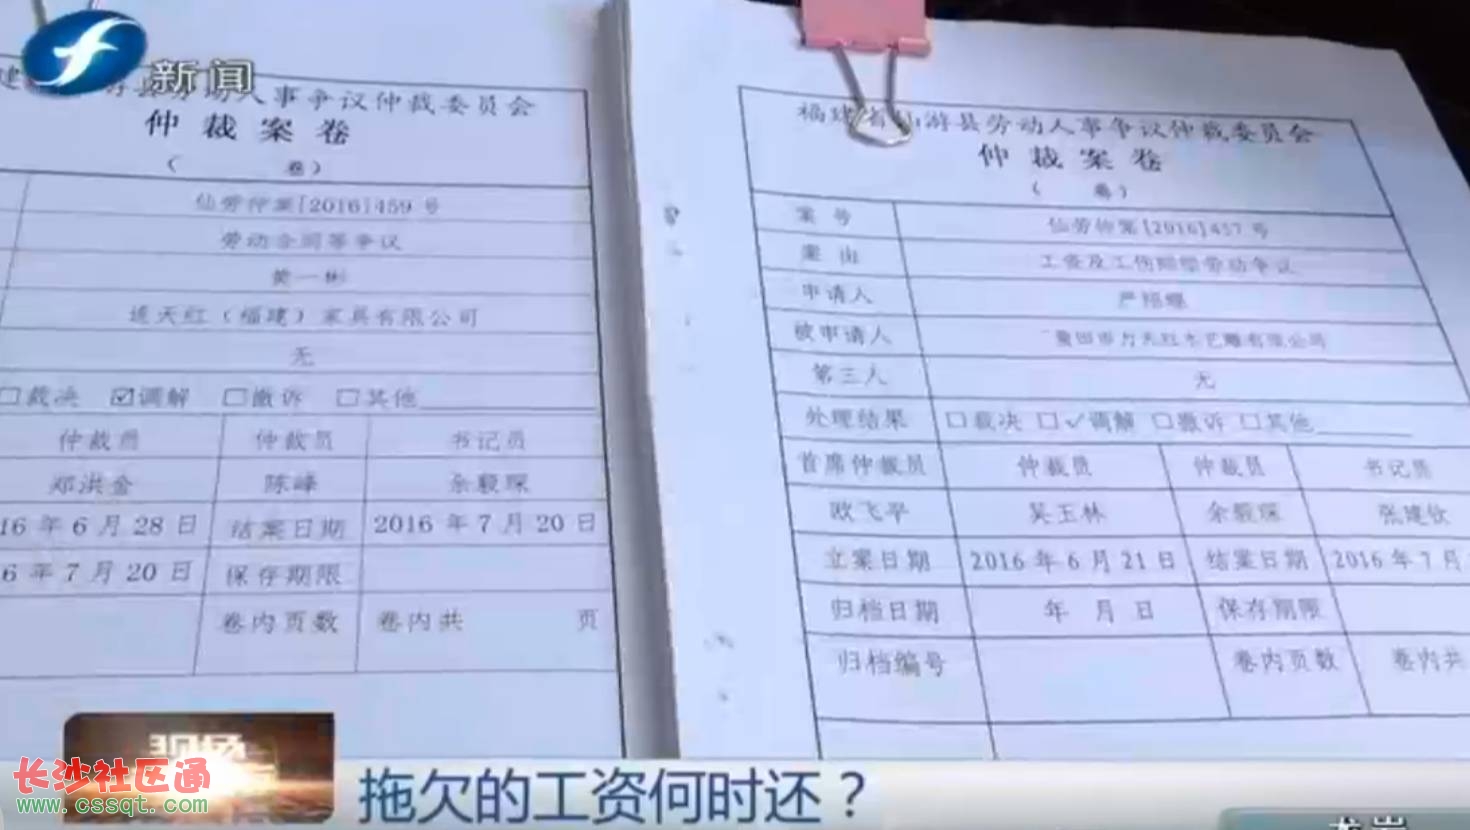 新闻
人事争议仲裁委员会
仲裁案卷
（ 卷）
仙劳仲案[2016]459号
劳动合同等争议
黄一彬
连天红（福建）家具有限公司
无
□裁决 ☑调解 □撤诉 □其他
仲裁员 仲裁员 书记员
邓洪金 陈峰 余毅琛
16年6月28日 结案日期 2016年7月20日
6年7月20日 保存期限
卷内页数 卷内共 页
福建省仙游县劳动人事争议仲裁委员会
仲裁案卷
（ 卷）
案号 仙劳仲案[2016]457号
案由 工资及工伤赔偿劳动争议
申请人 严
被申请人 莆田市 木艺雕有限公司
第三人 无
处理结果 □裁决 □✓调解 □撤诉 □其他
首席仲裁员 仲裁员 仲裁员 书记员
欧飞平 吴玉林 余毅琛 张建钦
立案日期 2016年6月21日 结案日期 2016年7月
归档日期 年 月 日 保存期限
归档编号 卷内页数 卷内共
现场
长沙社区通
www.cssqt.com
拖欠的工资何时还？